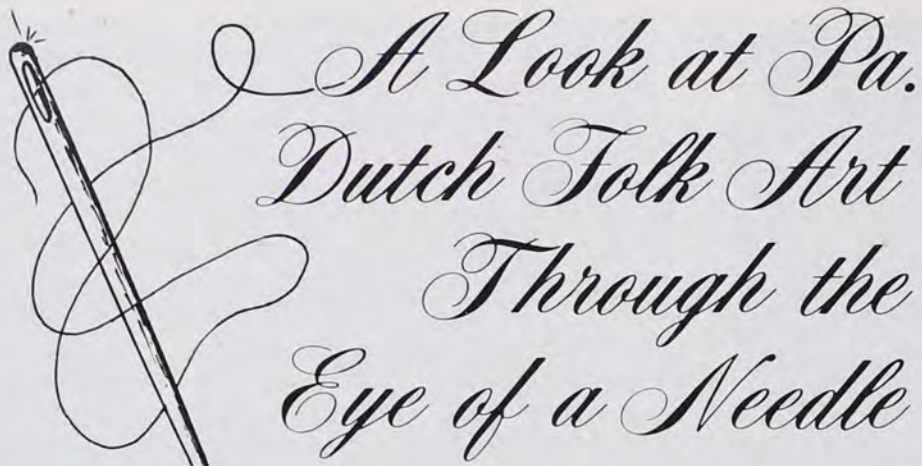 A Look at Pa.
Dutch Folk Art
Through the
Eye of a Needle